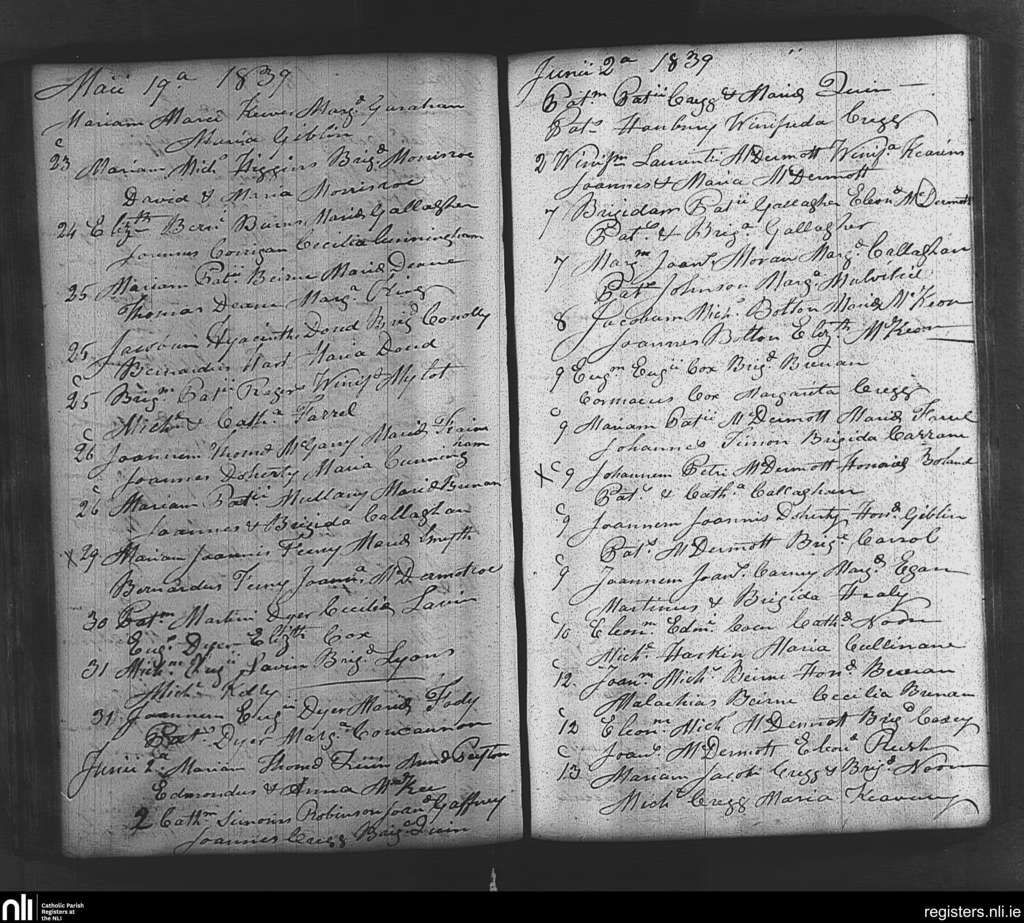 Maii 19a 1839
Mariam Marci Marg.
Maria Giblin
c
23 Mariam Michs Higgins Brigd Morrisroe
David & Maria Morrisroe
24 Elizth Berni Beirne Mariæ Gallaghan
Joannes Corrigan Cecilia Cunningham
25 Mariam Patii Beirne Mariæ Deane
Thomas Deane Marga
25 Jacobum Hyacinthi Doud Brigd Conolly
Bernardus Hart Maria Doud
c
25 Brigm Patii Winifd
Michs & Catha Farrel
c
26 Joannem Thomæ McGarry Mariæ
Joannes Doherty Maria Cunning
ham
c
26 Mariam Patii Mullany Mariæ Brenan
Joannes & Brigida Callaghan
x 29 Mariam Joannis Feeny Mariæ Smyth
Bernardus Feeny Joanna McDermotroe
30 Patm Martini Dyer Cecilia Lavin
Eugs Dyer Elizth Cox
31 Michm Eugii Lavin Brigd Lyons
Michs Kelly
31 Joannem Eugii Dyer Mariæ Fody
Pats Dyer Marga Concannon
Junii 2a Mariam Thomæ Annæ Peyton
Edmondus & Anna McKee
2 Cathm Simonis Robinson Joand Gaffney
Joannes Cregg Briga Quin
Junii 2a 1839
Patm Patii Cregg & Mariæ Quin
Pats Hanbury Winifreda Cregg
2 Winifm Laurentii McDermott Winifa Kearins
Joannes & Maria McDermott
7 Brigidam Patii Gallagher Eleond McDermott
Pats & Briga Gallagher
7 Margm Joans Moran Marga Callaghan
Pats Johnson Marga
8 Jacobum Michs Bolton Mariæ McKeon
Joannes Bolton Elizth McKeon
9 Eugm Eugii Cox Brigd Brenan
Cormacus Cox Margarita Cregg
c
9 Mariam Patii McDermott Mariæ Farrel
Johannes Timon Brigida
x c 9 Johannem Petri McDermott Honoriæ Boland
Pats & Catha Callaghan
c
9 Joannem Joannis Doherty Hond Giblin
Pats McDermott Briga Carrol
c
9 Joannem Joans Carney Margd Egan
Martinus & Brigida Healy
c
10 Eleonm Edmi Coen Cathd Noon
Michs Harkin Maria Cullinane
c
12 Joanm Michs Beirne Hond Brenan
Malachias Beirne Cecilia Brenan
c
12 Eleonm Mich McDermott Brigd Casey
Joans McDermott Eleona Rush
c
13 Mariam Jacobi Cregg & Brigd Noon
Michs Cregg Maria Keaveny
nli
Catholic Parish
Registers at
the NLI
registers.nli.ie